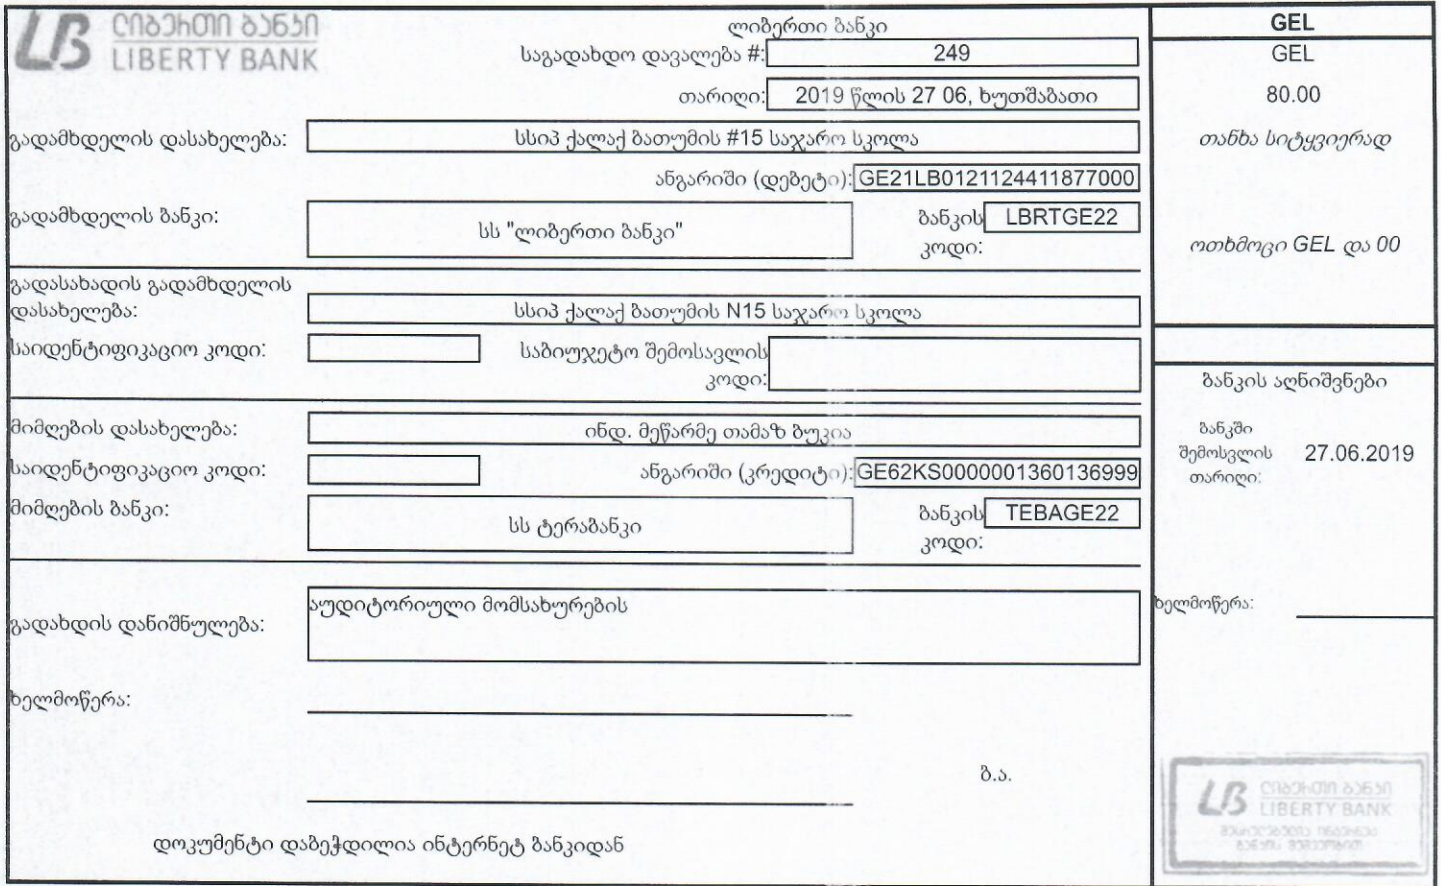 ლიბერთი ბანკი
LIBERTY BANK
ლიბერთი ბანკი
საგადახდო დავალება #: 249
თარიღი: 2019 წლის 27 06, ხუთშაბათი
გადამხდელის დასახელება: სსიპ ქალაქ ბათუმის #15 საჯარო სკოლა
ანგარიში (დებეტი): GE21LB0121124411877000
გადამხდელის ბანკი: სს "ლიბერთი ბანკი" ბანკის კოდი: LBRTGE22
გადასახადის გადამხდელის
დასახელება: სსიპ ქალაქ ბათუმის N15 საჯარო სკოლა
საიდენტიფიკაციო კოდი: საბიუჯეტო შემოსავლის
კოდი:
მიმღების დასახელება: ინდ. მეწარმე თამაზ ბუკია
საიდენტიფიკაციო კოდი: ანგარიში (კრედიტი): GE62KS0000001360136999
მიმღების ბანკი: სს ტერაბანკი ბანკის კოდი: TEBAGE22
აუდიტორიული მომსახურების
გადახდის დანიშნულება:
ხელმოწერა:
ბ.ა.
დოკუმენტი დაბეჭდილია ინტერნეტ ბანკიდან
GEL
GEL
80.00
თანხა სიტყვიერად
ოთხმოცი GEL და 00
ბანკის აღნიშვნები
ბანკში
შემოსვლის 27.06.2019
თარიღი:
ხელმოწერა:
ლიბერთი ბანკი
LIBERTY BANK